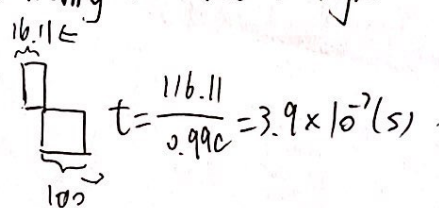 16.11 ←
t = 116.11 / 0.99c = 3.9 × 10⁻⁷ (s)
100 →